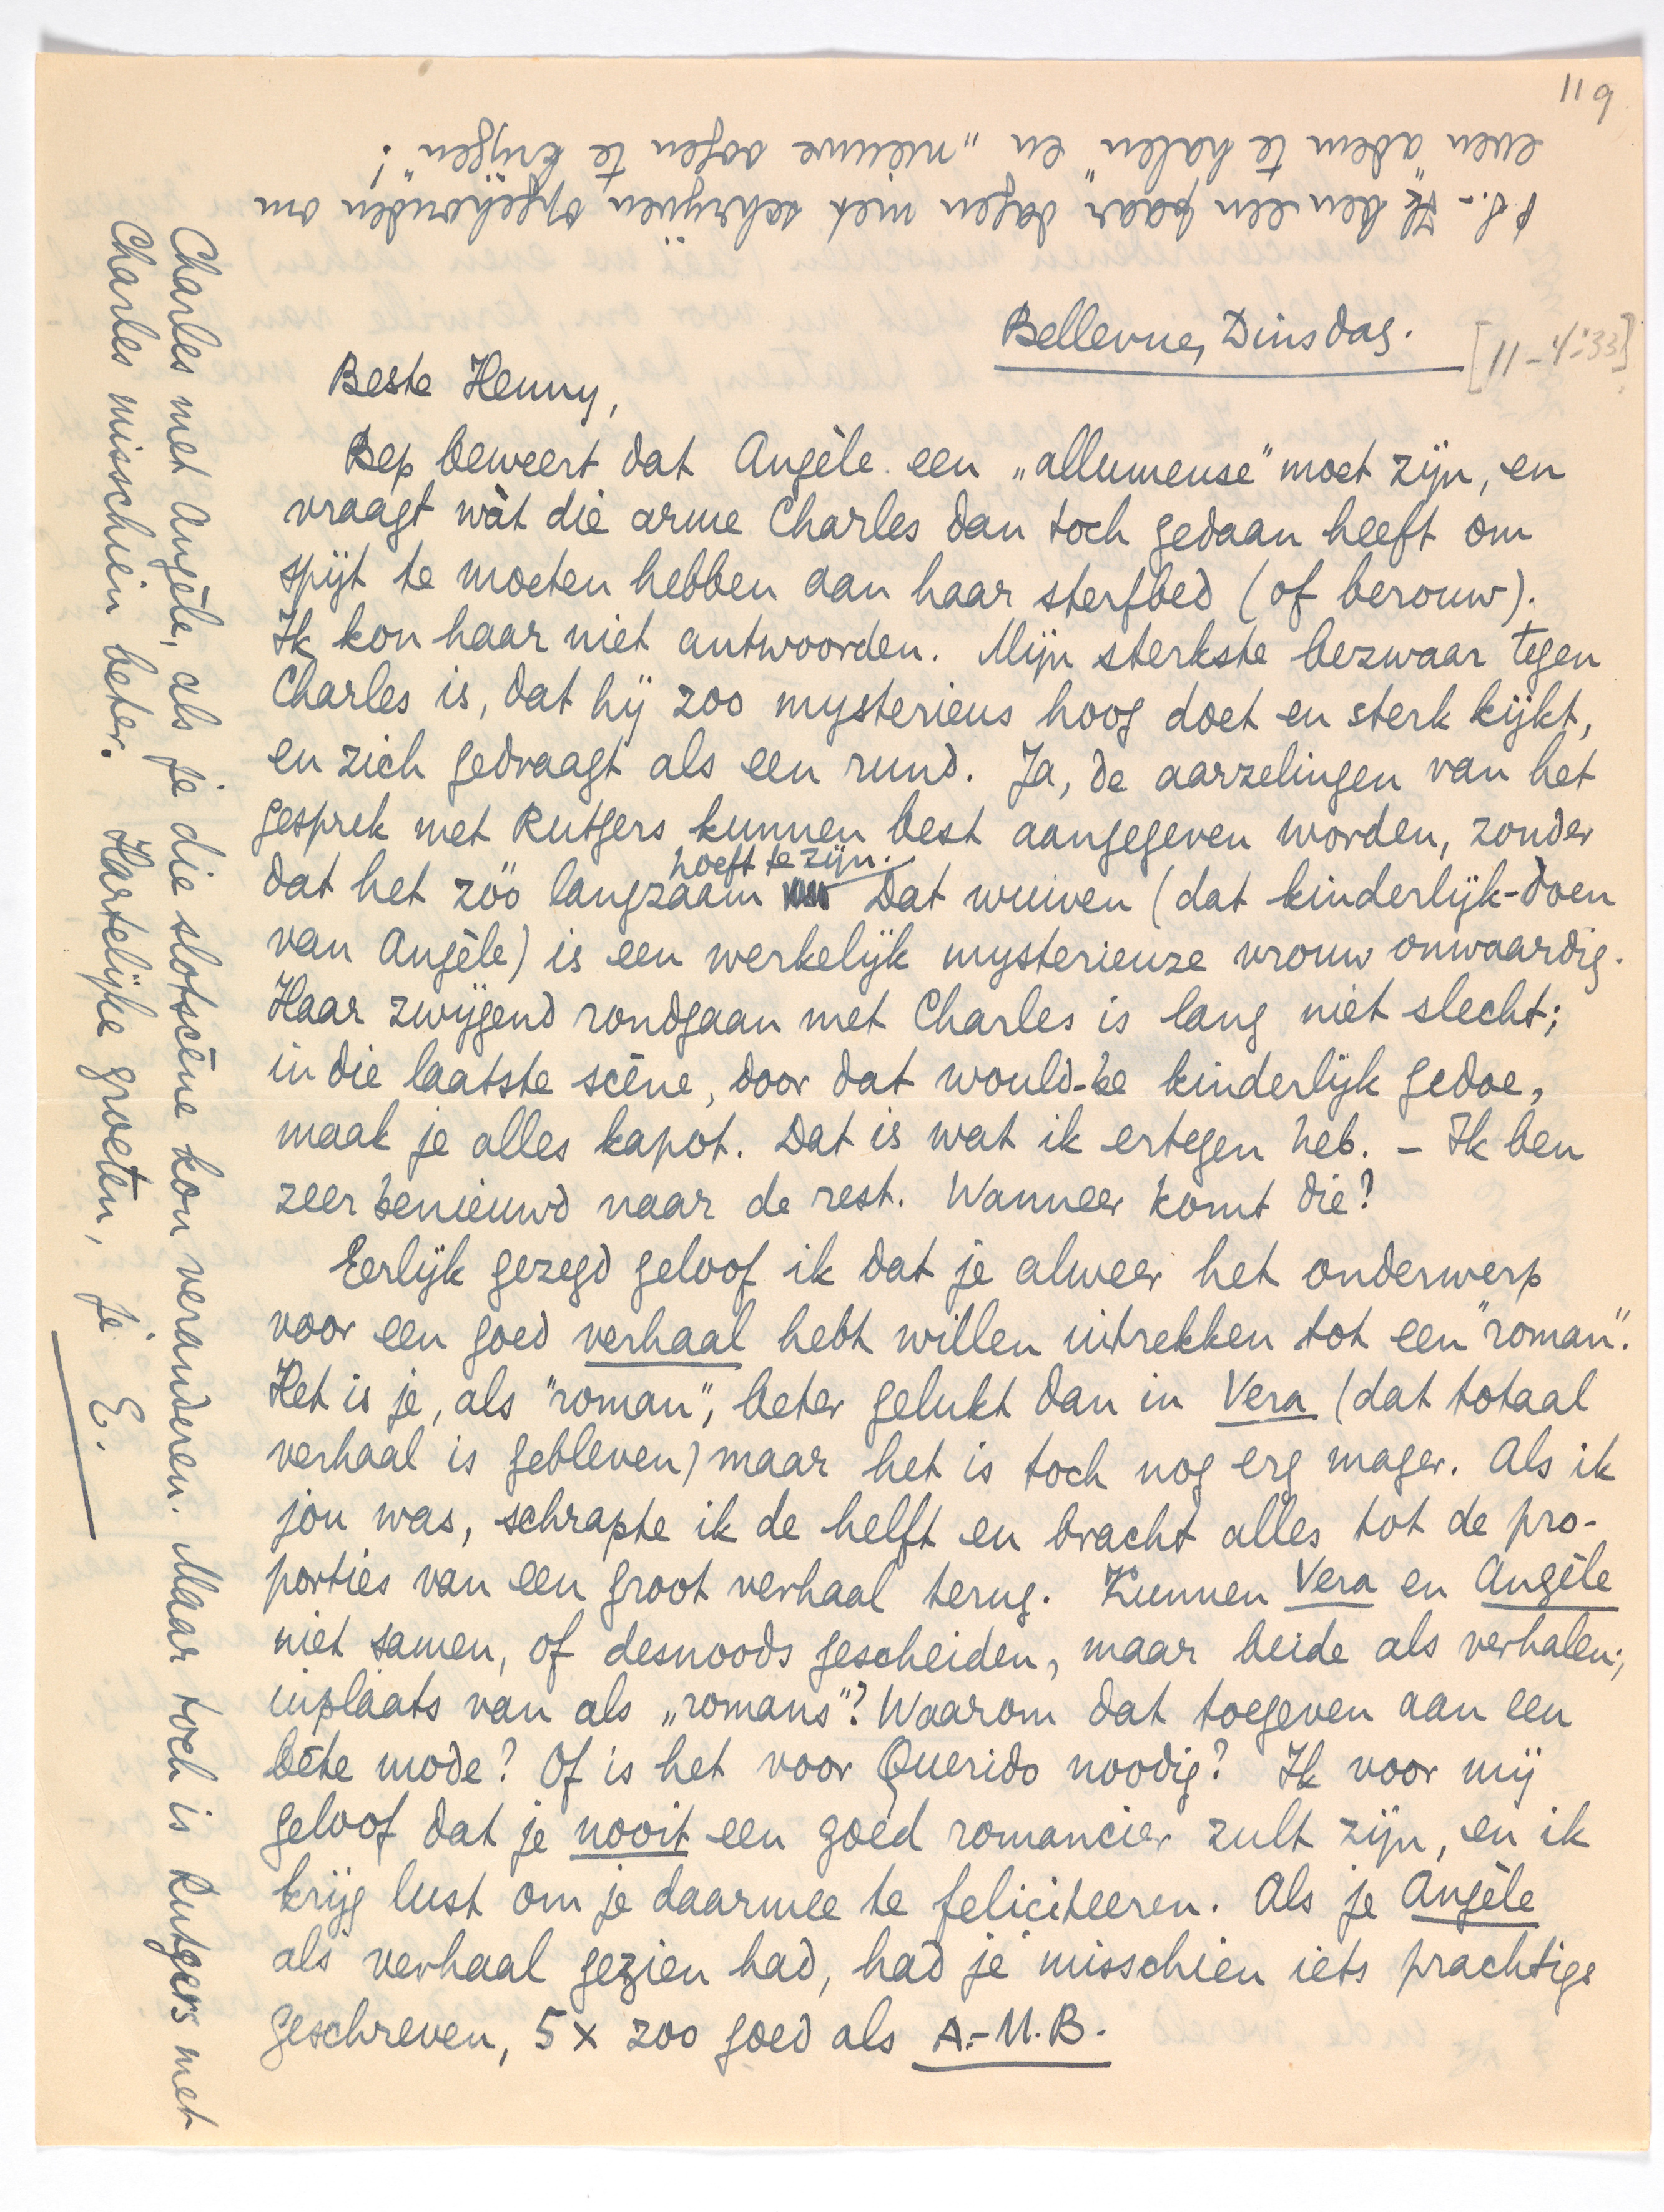 119
P.S. - Ik ben een paar dagen niet schrijven opgehouden om
even "adem te halen" en "nieuwe oogen te krijgen"!
Bellevue, Dinsdag.
[11-4-'33]
Beste Henny,
Bep beweert dat Angèle een „allumeuse" moet zijn, en
vraagt wàt die arme Charles dan toch gedaan heeft om
spijt te moeten hebben aan haar sterfbed (of berouw).
Ik kon haar niet antwoorden. Mijn sterkste bezwaar tegen
Charles is, dat hij zoo mysterieus hoog doet en sterk kijkt,
en zich gedraagt als een rund. Ja, de aarzelingen van het
gesprek met Rutgers kunnen best aangegeven worden, zonder
dat het zóó langzaam hoeft te zijn. Dat wuiven (dat kinderlijk-doen
van Angèle) is een werkelijk mysterieuze vrouw onwaardig.
Haar zwijgend rondgaan met Charles is lang niet slecht;
in die laatste scène, door dat would-be kinderlijk gedoe,
maak je alles kapot. Dat is wat ik ertegen heb. - Ik ben
zeer benieuwd naar de rest. Wanneer komt die?
Eerlijk gezegd geloof ik dat je alweer het onderwerp
voor een goed verhaal hebt willen uitrekken tot een "roman".
Het is je, als "roman", beter gelukt dan in Vera (dat totaal
verhaal is gebleven) maar het is toch nog erg mager. Als ik
jou was, schrapte ik de helft en bracht alles tot de pro-
porties van een groot verhaal terug. Kunnen Vera en Angèle
niet samen, of desnoods gescheiden, maar beide als verhalen,
inplaats van als „romans"? Waarom dat toegeven aan een
bête mode? Of is het voor Querido noodig? Ik voor mij
geloof dat je nooit een goed romancier zult zijn, en ik
krijg lust om je daarmee te feliciteeren. Als je Angèle
als verhaal gezien had, had je misschien iets prachtigs
geschreven, 5 x zoo goed als A.-M.B.
Charles met Angèle, als je die slotscène kon veranderen. Maar toch is Rutgers met
Charles misschien beter. Hartelijke groeten, je E.